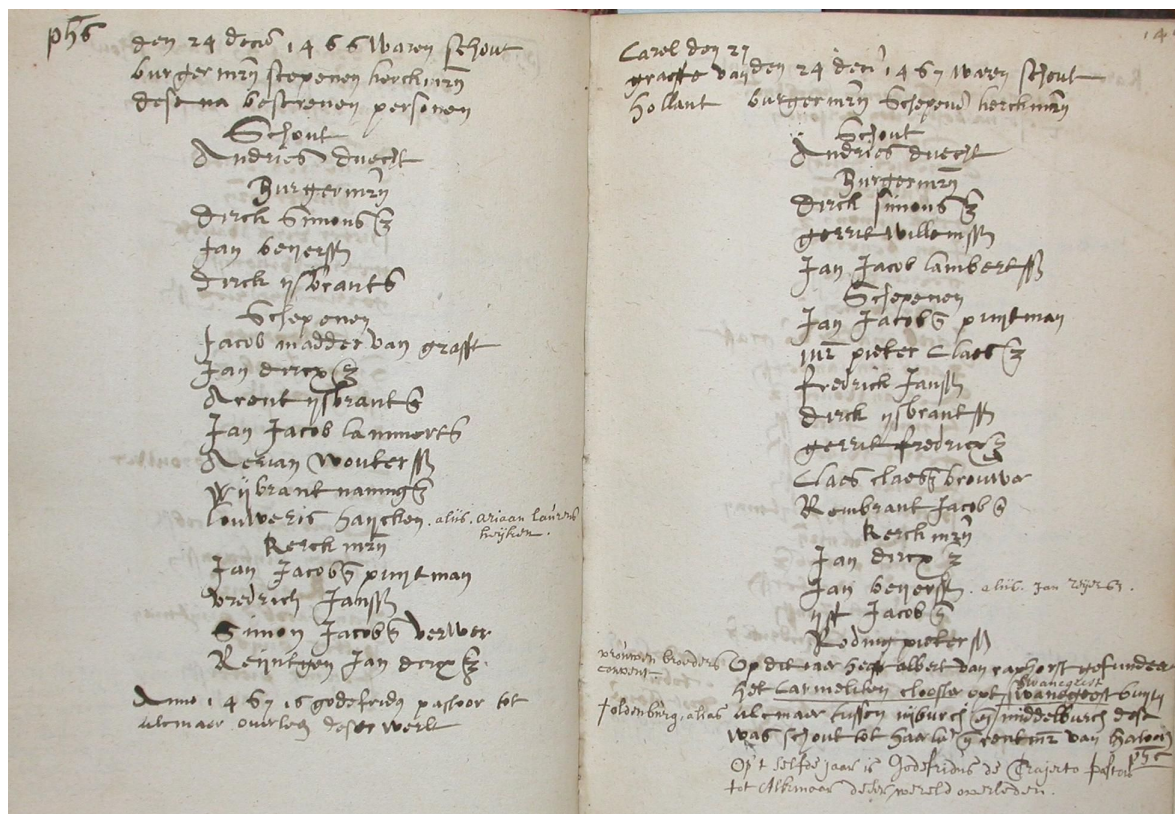 phs
den 24 decem 1466 waren schout
burgermrn scepenen kerckmrn
dese na bescreven personen
Schout
Andries duecht
Burgermrn
Dirck Simonsz
Jan beyerssn
dirck ijsbrants
Schepenen
Jacob madder van grafft
Jan dircxsz
Arent ijsbrants
Jan Jacob lammerts
Aerian wouterssn
wijbrant namingsz
louweris haijcken . aliis. ariaan laurens
heijken.
Kerckmrn
Jan Jacobsz puijtman
vredrich Janssn
Simon Jacobsz verwer
Reijntgen Jan dircxsz.
Anno 1467 is godefridus pastoor tot
alcmaer overleden deser werlt
14
Carel den 27
graeffe van
hollant
den 24 decem 1467 waren schout
burgermrn Schepenen kerckmrn
Schout
Andries duecht
Burgermrn
Dirck simonsz
gerrit willemssn
Jan Jacob lambertssn
Schepenen
Jan Jacobsz puijtman
mr pieter Claesz
fredrick Janssn
dirck ijsbrantssn
gerrit fredricxsz
Claes claesz brouwer
Rembrant Jacobsz
Kerckmrn
Jan dircxz
Jan beyerssn . aliis. Jan Reyersz.
ijsft Jacobsz
Roduig pieterssn
vrouwen broeders
convent
Op dit iaer heeft albert van raphorst gefundeer
het Carmeliten clooster opt swaecgeest buijten
swanegeest
foldenburg, alias
alcmaer tussen nijburch en middelburch dese
was schout tot haarlem en rentmr van
phs
Op't selfde jaar is Godefridus de Trajecto Pastoor
tot Alkmaar deser wereld overleden.